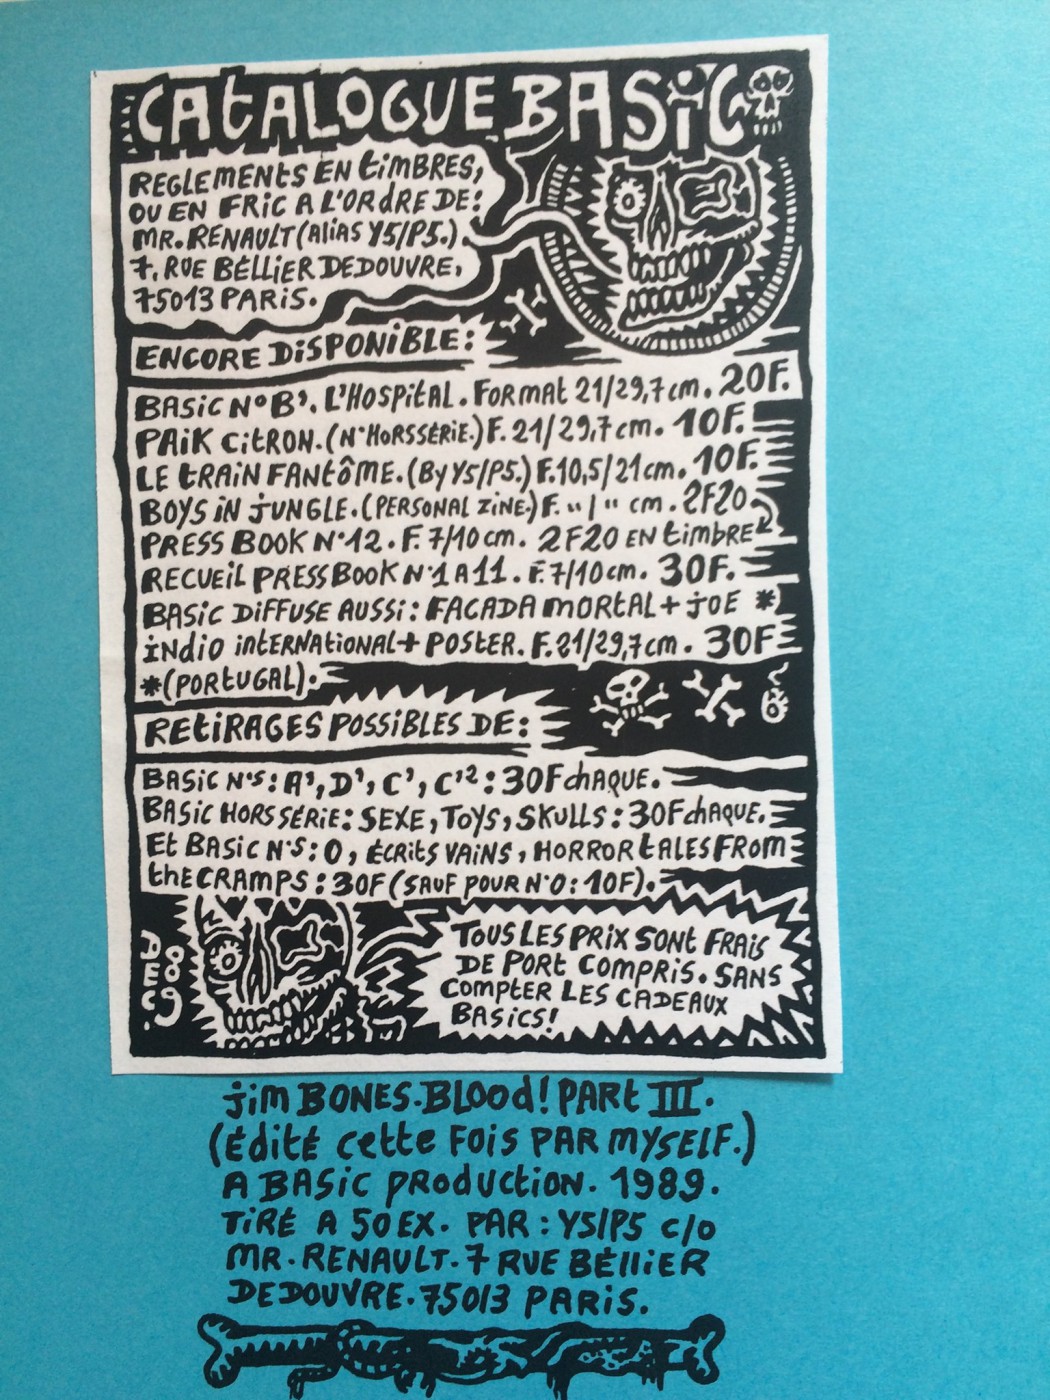 CATALOGUE BASIC
REGLEMENTS EN TIMBRES,
OU EN FRIC A L'ORDRE DE:
MR. RENAULT (ALIAS Y5/P5.).
7, RUE BÉLLIER DEDOUVRE,
75013 PARIS.
ENCORE DISPONIBLE:
BASIC N° B'. L'HOSPITAL. FORMAT 21/29,7 cm. 20F.
PAIK CITRON. (N° HORS SÉRIE.) F. 21/29,7 cm. 10F.
LE TRAIN FANTÔME. (BY Y5/P5.) F. 10,5/21 cm. 10F.
BOYS IN JUNGLE. (PERSONAL ZINE.) F. " / " cm. 2F20
PRESS BOOK N°12. F. 7/10 cm. 2F20 EN TIMBRE
RECUEIL PRESS BOOK N°1 A 11. F. 7/10 cm. 30F.
BASIC DIFFUSE AUSSI: FACADA MORTAL + JOE *
INDIO INTERNATIONAL + POSTER. F. 21/29,7 cm. 30F
*(PORTUGAL).
RETIRAGES POSSIBLES DE:
BASIC N°S: A', D', C', C'2: 30F CHAQUE.
BASIC HORS SÉRIE: SEXE, TOYS, SKULLS: 30F CHAQUE.
ET BASIC N°S: 0, ÉCRITS VAINS, HORROR TALES FROM
THE CRAMPS: 30F (SAUF POUR N°0: 10F).
TOUS LES PRIX SONT FRAIS
DE PORT COMPRIS. SANS
COMPTER LES CADEAUX
BASICS!
JIM BONES. BLOOD! PART III.
(ÉDITÉ CETTE FOIS PAR MYSELF.)
A BASIC PRODUCTION. 1989.
TIRÉ A 50 EX. PAR: Y5/P5 C/O
MR. RENAULT. 7 RUE BÉLLIER
DEDOUVRE. 75013 PARIS.